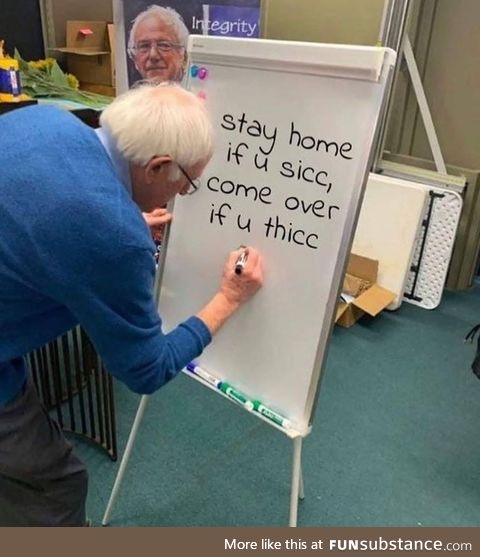 Integrity
stay home
if u sicc,
come over
if u thicc
More like this at FUNsubstance.com